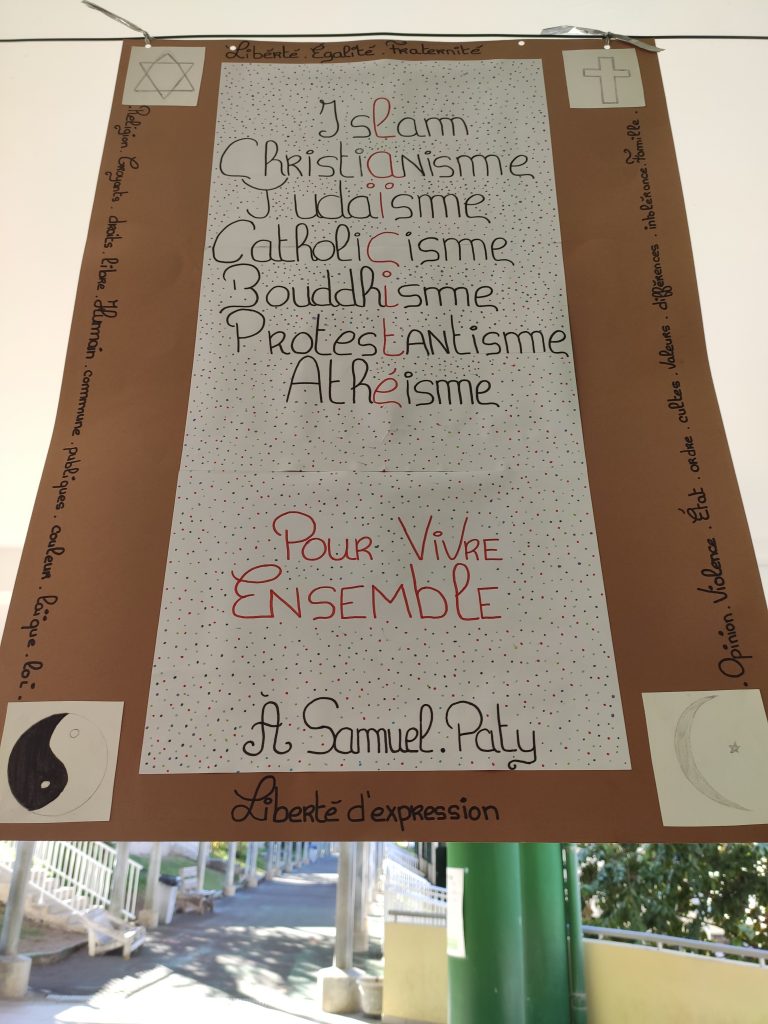 Liberté. Égalité. Fraternité
Islam
Christianisme
Judaïsme
Catholicisme
Bouddhisme
Protestantisme
Athéisme
Pour Vivre
Ensemble
À Samuel. Paty
Liberté d'expression
Religion. Croyants. droits. libre. Humain. commune. publiques. couleur. laïque. loi.
. Opinion. Violence. État. ordre. cultes. valeurs. différences. intolérance. Famille.